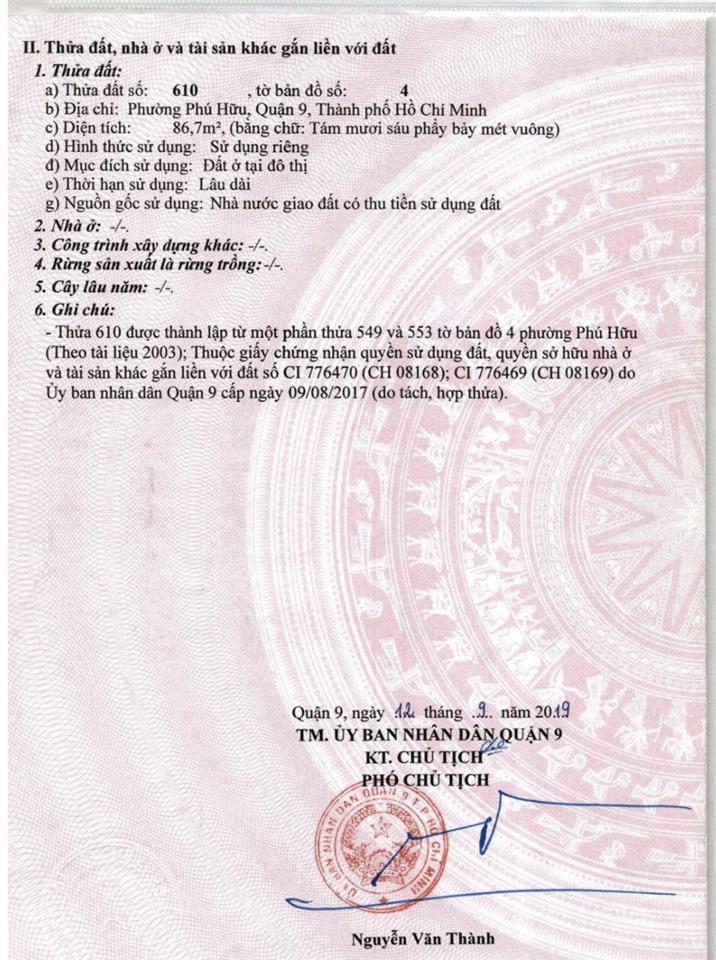 II. Thửa đất, nhà ở và tài sản khác gắn liền với đất
1. Thửa đất:
a) Thửa đất số: 610 , tờ bản đồ số: 4
b) Địa chỉ: Phường Phú Hữu, Quận 9, Thành phố Hồ Chí Minh
c) Diện tích: 86,7m², (bằng chữ: Tám mươi sáu phẩy bảy mét vuông)
d) Hình thức sử dụng: Sử dụng riêng
đ) Mục đích sử dụng: Đất ở tại đô thị
e) Thời hạn sử dụng: Lâu dài
g) Nguồn gốc sử dụng: Nhà nước giao đất có thu tiền sử dụng đất
2. Nhà ở: -/-.
3. Công trình xây dựng khác: -/-.
4. Rừng sản xuất là rừng trồng:-/-.
5. Cây lâu năm: -/-.
6. Ghi chú:
- Thửa 610 được thành lập từ một phần thửa 549 và 553 tờ bản đồ 4 phường Phú Hữu
(Theo tài liệu 2003); Thuộc giấy chứng nhận quyền sử dụng đất, quyền sở hữu nhà ở
và tài sản khác gắn liền với đất số CI 776470 (CH 08168); CI 776469 (CH 08169) do
Ủy ban nhân dân Quận 9 cấp ngày 09/08/2017 (do tách, hợp thửa).
Quận 9, ngày 12 tháng 9 năm 2019
TM. ỦY BAN NHÂN DÂN QUẬN 9
KT. CHỦ TỊCH
PHÓ CHỦ TỊCH
ỦY BAN NHÂN DÂN QUẬN 9 T.P HỒ CHÍ MINH
Nguyễn Văn Thành